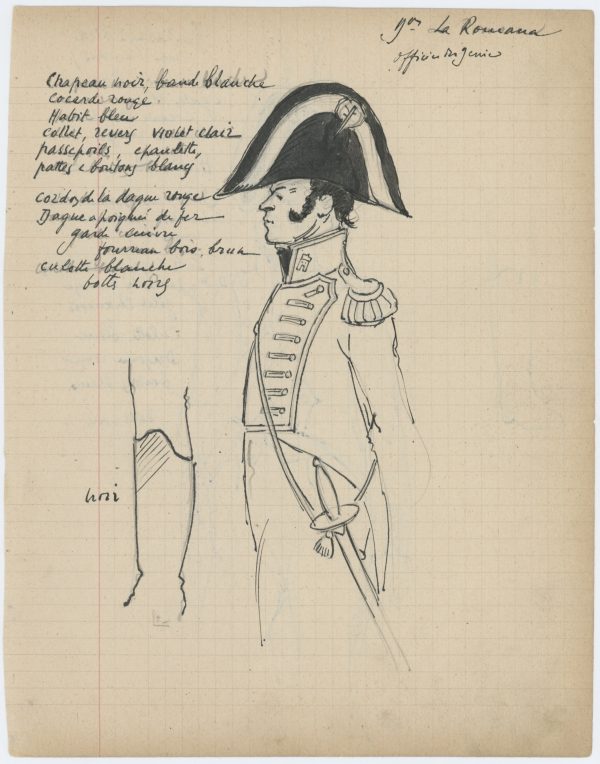 Don La Romana
officier du génie
Chapeau noir, bande blanche
cocarde rouge
Habit bleu
collet, revers violet clair
passepoils, epaulette,
pattes & boutons blancs
cordon de la dague rouge
Dague a poignée de fer
garde cuivre
fourreau bois brun
culotte blanche
botte noirs
noir